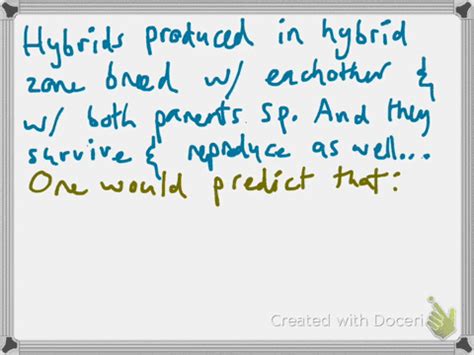 Hybrids produced in hybrid
zone breed w/ eachother &
w/ both parents sp. And they
survive & reproduce as well...
One would predict that:
Created with Doceri